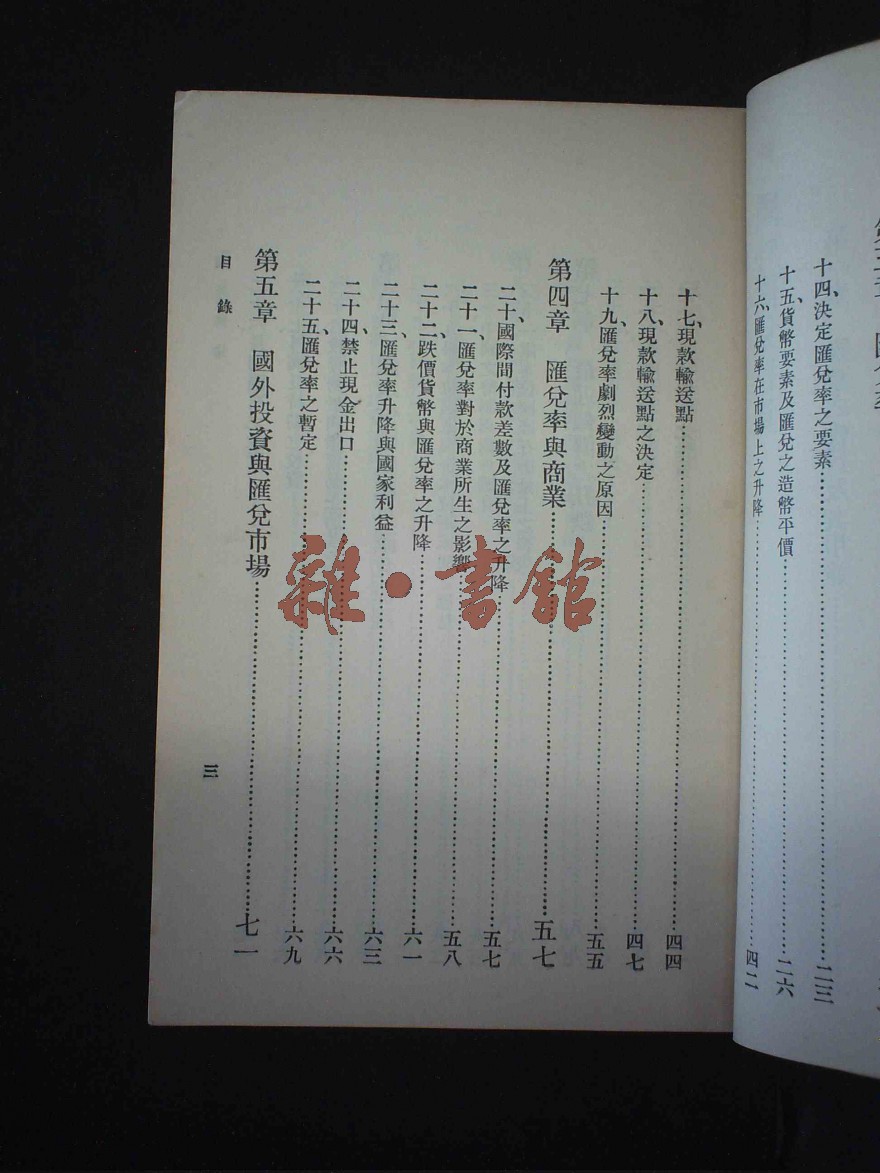 十四、決定匯兌率之要素……二三
十五、貨幣要素及匯兌之造幣平價……二六
十六、匯兌率在市場上之升降……四二
十七、現款輸送點……四四
十八、現款輸送點之決定……四七
十九、匯兌率劇烈變動之原因……五五
第四章　匯兌率與商業……五七
二十、國際間付款差數及匯兌率之升降……五七
二十一、匯兌率對於商業所生之影響……五八
二十二、跌價貨幣與匯兌率之升降……六一
二十三、匯兌率升降與國家利益……六三
二十四、禁止現金出口……六六
二十五、匯兌率之暫定……六九
第五章　國外投資與匯兌市場……七一
目錄
三
雜·書館